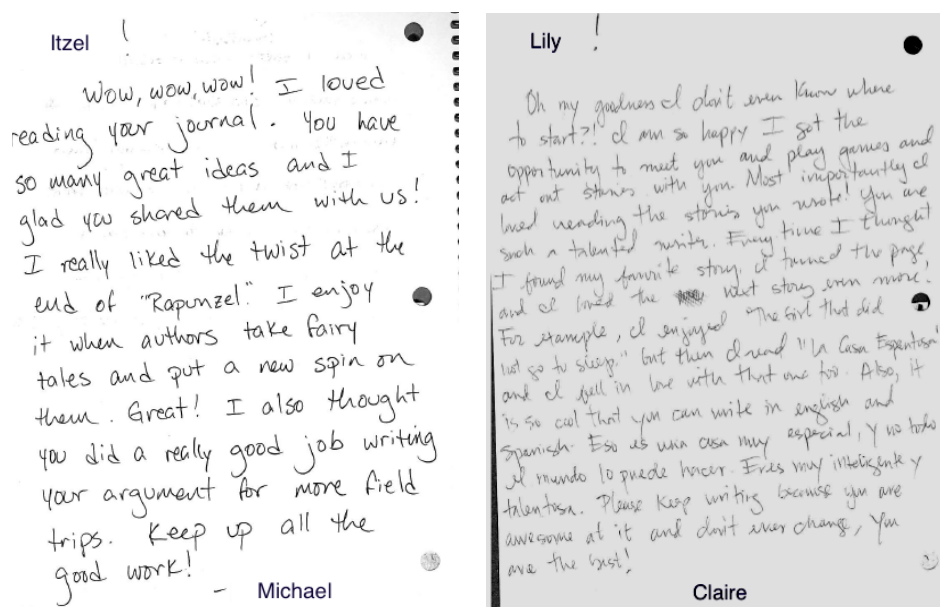 Itzel !
Wow, wow, wow! I loved
reading your journal. You have
so many great ideas and I
glad you shared them with us!
I really liked the twist at the
end of "Rapunzel." I enjoy
it when authors take fairy
tales and put a new spin on
them. Great! I also thought
you did a really good job writing
your argument for more field
trips. Keep up all the
good work!
- Michael
Lily !
Oh my goodness I don't even know where
to start?! I am so happy I got the
opportunity to meet you and play games and
act out stories with you. Most importantly I
loved reading the stories you wrote! You are
such a talented writer. Every time I thought
I found my favorite story, I turned the page,
and I loved the next story even more!
For example, I enjoyed "The Girl that did
not go to sleep." but then I read "La Casa Espantosa"
and I fell in love with that one too. Also, it
is so cool that you can write in english and
Spanish. Eso es una cosa muy especial, y no todo
el mundo lo puede hacer. Eres muy inteligente y
talentosa. Please keep writing because you are
awesome at it and don't ever change, You
are the best!
Claire